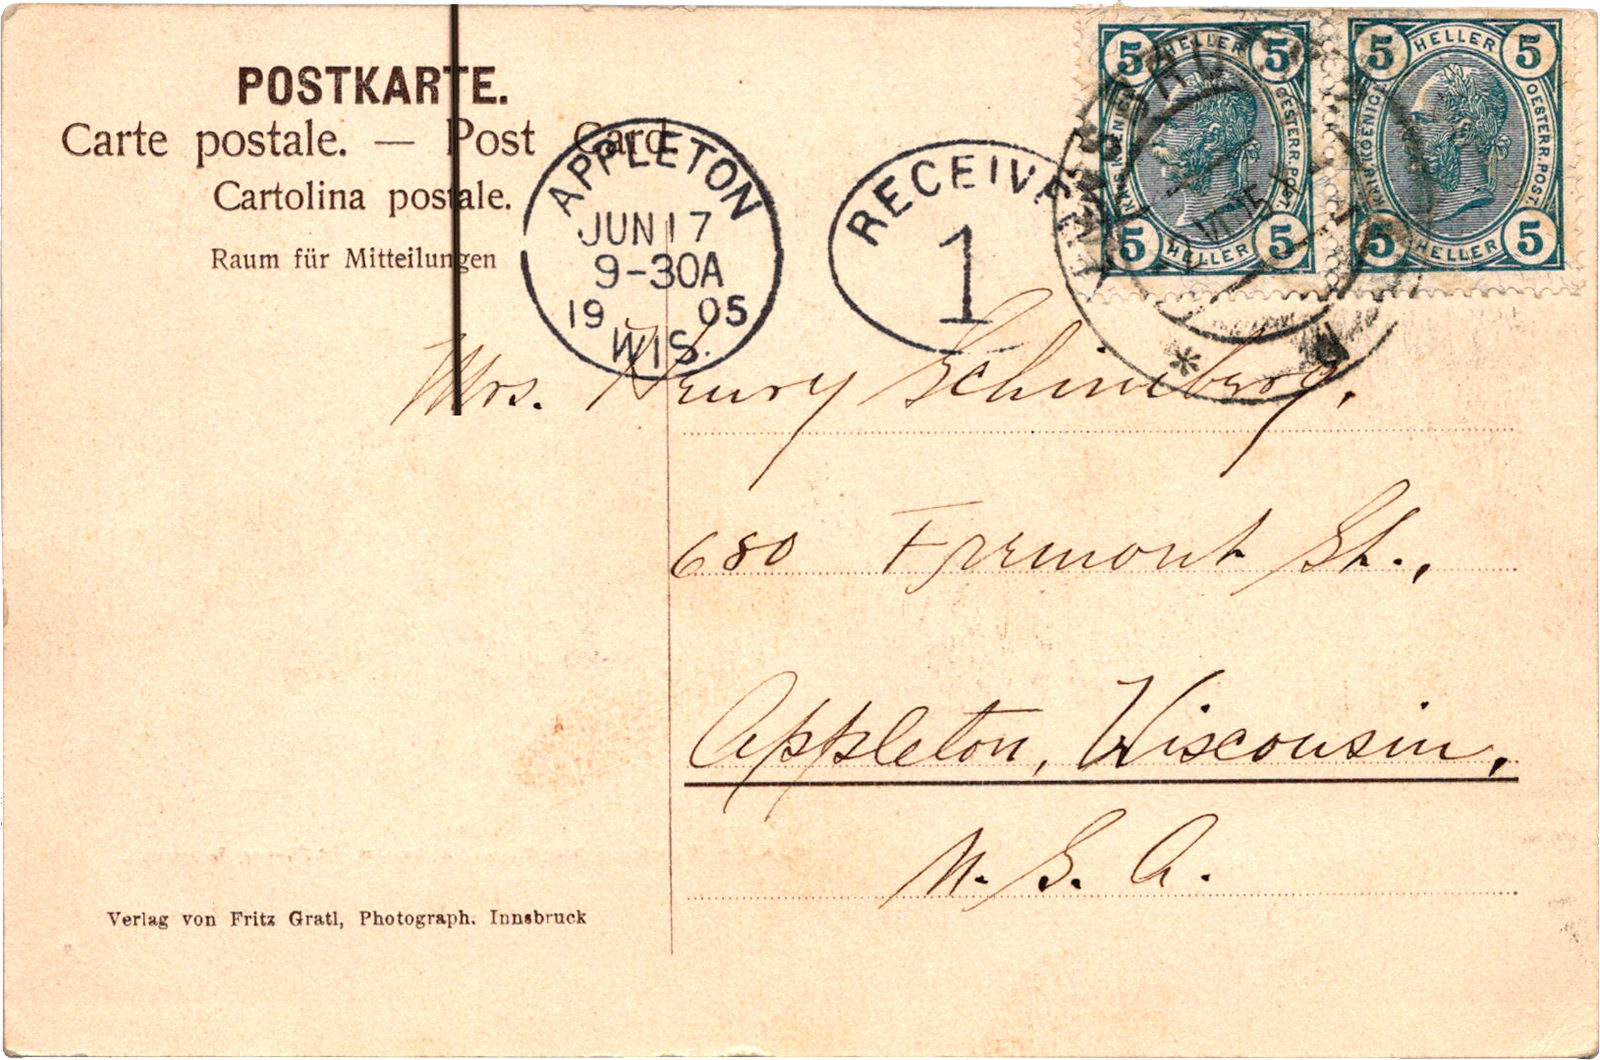 POSTKARTE.
Carte postale. — Post Card
Cartolina postale.
Raum für Mitteilungen
APPLETON
JUN 17
9-30A
19 05
WIS.
RECEIVE
1
5 HELLER 5
OESTERR. POST.
5 HELLER 5
5 HELLER 5
KAIS. KOENIGL.
OESTERR. POST.
5 HELLER 5
Mrs. Henry Schineberg.
680 Fremont St.,
Appleton, Wisconsin,
U. S. A.
Verlag von Fritz Gratl, Photograph. Innsbruck